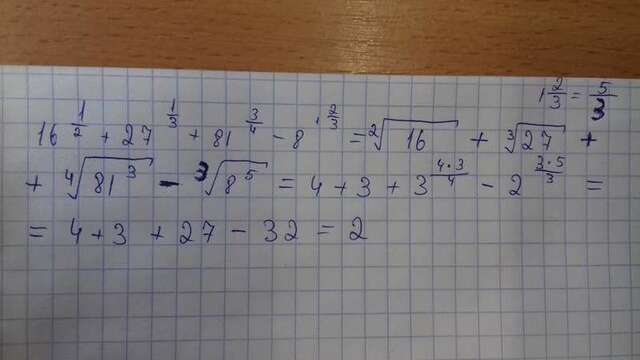 1 2/3 = 5/3
16^(1/2) + 27^(1/3) + 81^(3/4) - 8^(1 2/3) = ²√16 + ³√27 +
+ ⁴√81³ - ³√8⁵ = 4 + 3 + 3^(4·3/4) - 2^(3·5/3) =
= 4 + 3 + 27 - 32 = 2